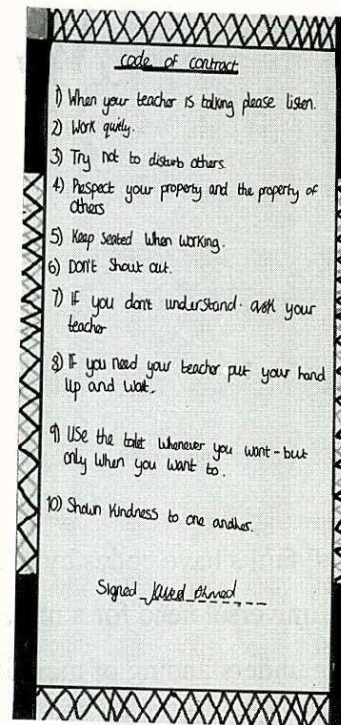 code of contract
1) When your teacher is talking please listen.
2) Work quitly.
3) Try not to disturb others.
4) Respect your property and the property of
others
5) Keep seated when working.
6) Don't shout out.
7) If you don't understand. ask your
teacher
8) If you need your teacher put your hand
up and wait.
9) Use the toilet whenever you want - but
only when you want to.
10) Shown kindness to one another.
Signed Ahmed